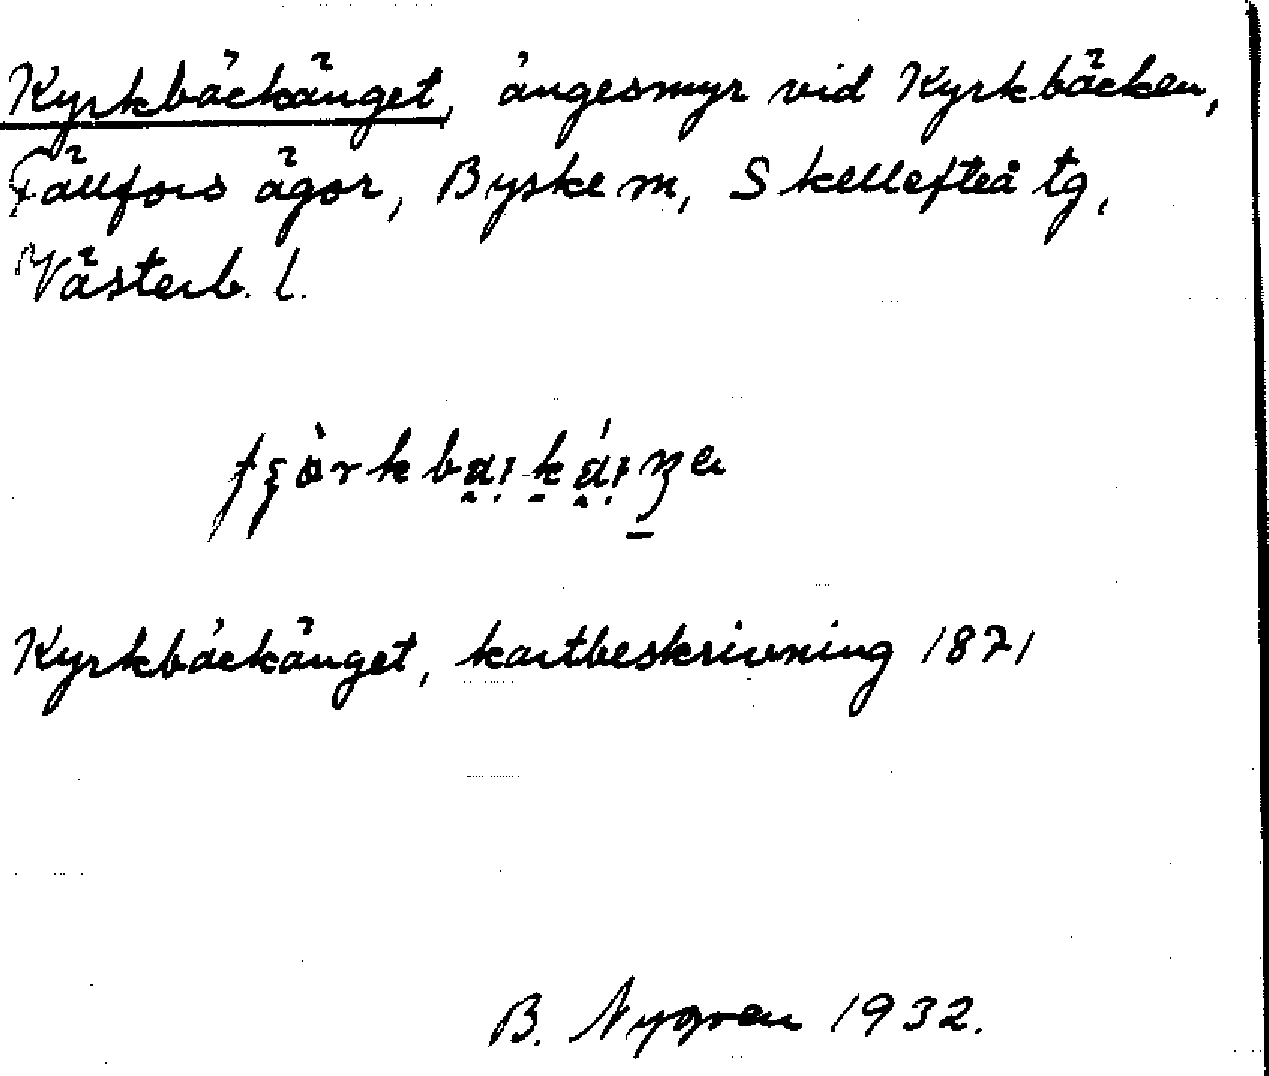 Kyrkbäckänget, ängesmyr vid Kyrkbäcken,
Fällfors ägor, Byske m, Skellefteå tg,
Västerb. l.
Kyrkbäckänget, kartbeskrivning 1871
B. Nygren 1932.